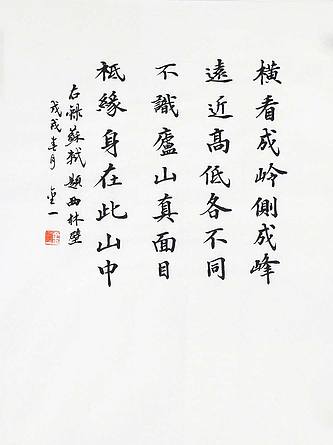 橫看成岭側成峰
遠近高低各不同
不識廬山真面目
祗緣身在此山中
右錄蘇軾題西林壁
戊戌春月